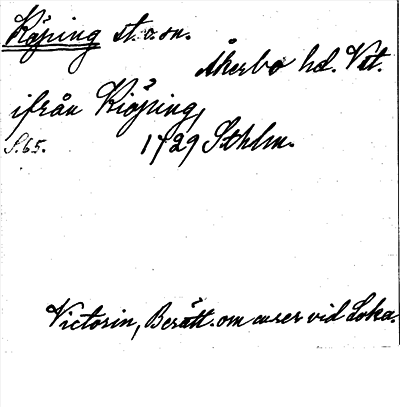 Köping st. o. sn.
Åkerbo hd. Vst.
ifrån Kiöping,
S.65. 1729 Sthlm.
Victorin, Berätt. om curer vid Loka.